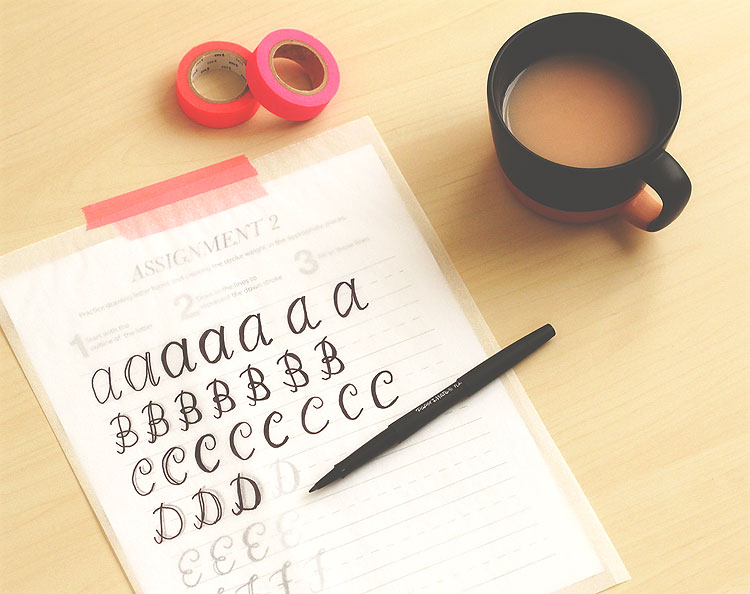 mt mt
ASSIGNMENT 2
Practice drawing letter forms and creating the stroke weight in the appropriate places.
1 Start with the
outline of the letter
2 Draw in the lines to
represent the down stroke
3 Fill in those lines
a a a a a a a
B B B B B B B
C C C C C C C C
D D D D
E E E E